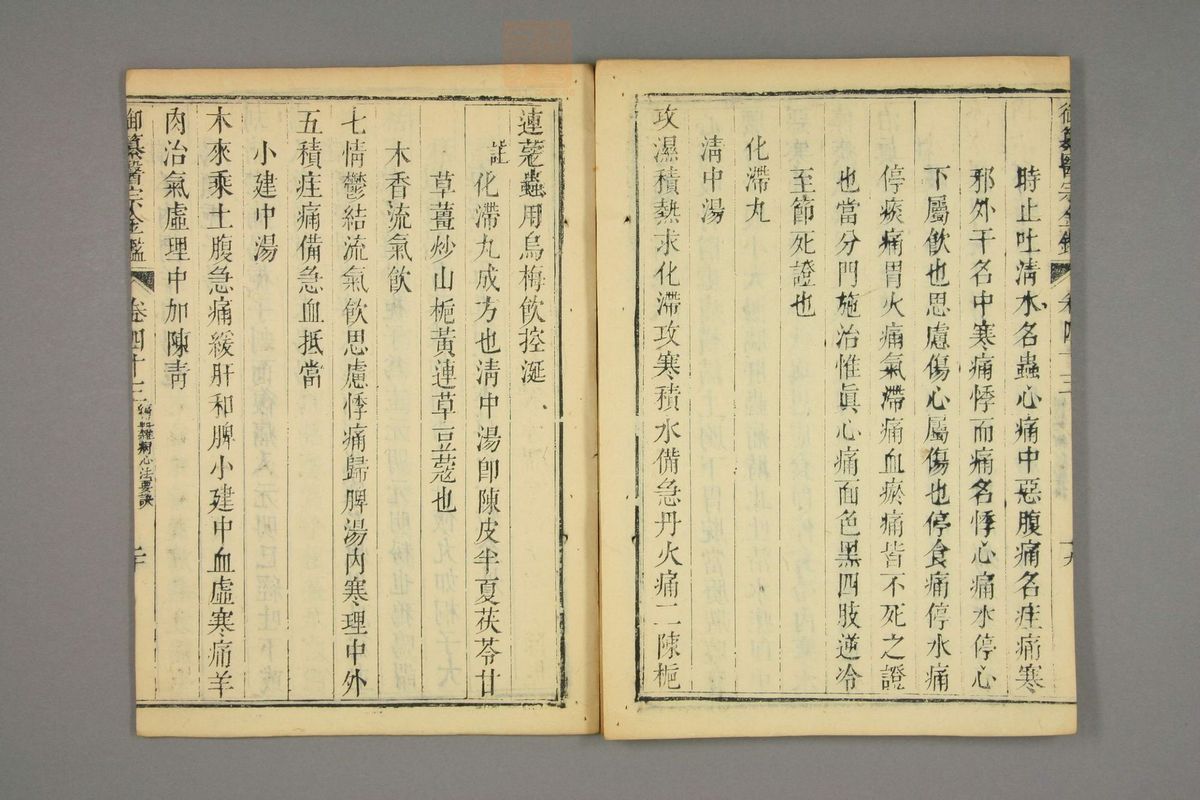 御纂醫宗金鑑
卷四十三
十九
時止吐清水名蟲心痛中惡腹痛名疰痛寒
邪外干名中寒痛悸而痛名悸心痛水停心
下屬飲也思慮傷心屬傷也停食痛停水痛
停痰痛胃火痛氣滯痛血瘀痛皆不死之證
也當分門施治惟眞心痛面色黑四肢逆冷
至節死證也
化滯丸
清中湯
攻濕積熱求化滯攻寒積水備急丹火痛二陳梔
連蔻蟲用烏梅飲控涎
註
化滯丸成方也清中湯卽陳皮半夏茯苓甘
草薑炒山梔黃連草豆蔻也
木香流氣飲
七情鬱結流氣飲思慮悸痛歸脾湯內寒理中外
五積疰痛備急血抵當
小建中湯
木來乘土腹急痛緩肝和脾小建中血虛寒痛羊
肉治氣虛理中加陳青
御纂醫宗金鑑
卷四十三
雜病心法要訣
二十